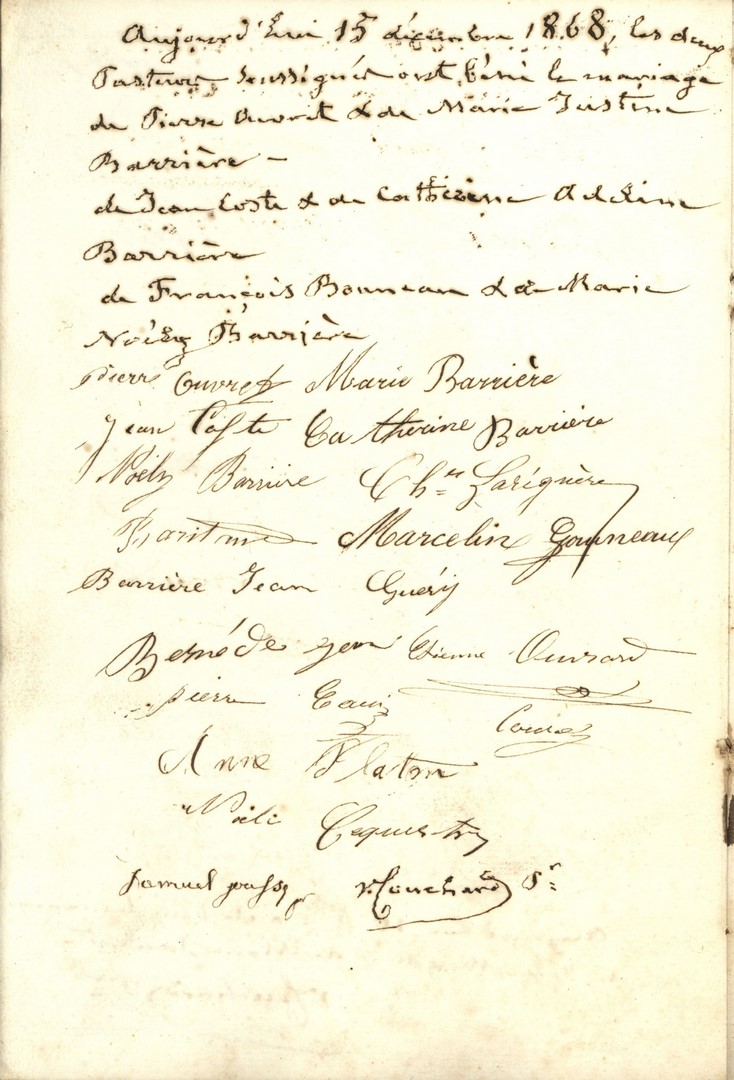 Aujourd'hui 15 décembre 1868, les deux
Pasteurs soussignés ont béni le mariage
de Pierre Ouvret & de Marie Justine
Barrière –
de Jean Coste & de Catherine Adeline
Barrière
de François Bonneau & de Marie
Noély Barrière
pierre Ouvret Marie Barrière
Jean Coste Catherine Barrière
Noély Barriere Ch=
Marcelin Gouineaux
Barrière Jean Guéry
Jean Etienne Ouvrard
pierre
Anne Platon
Samuel